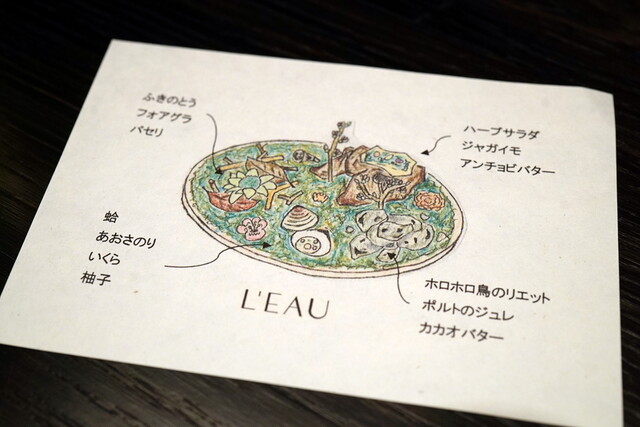 ふきのとう
フォアグラ
パセリ
ハーブサラダ
ジャガイモ
アンチョビバター
蛤
あおさのり
いくら
柚子
ホロホロ鳥のリエット
ポルトのジュレ
カカオバター
L'EAU